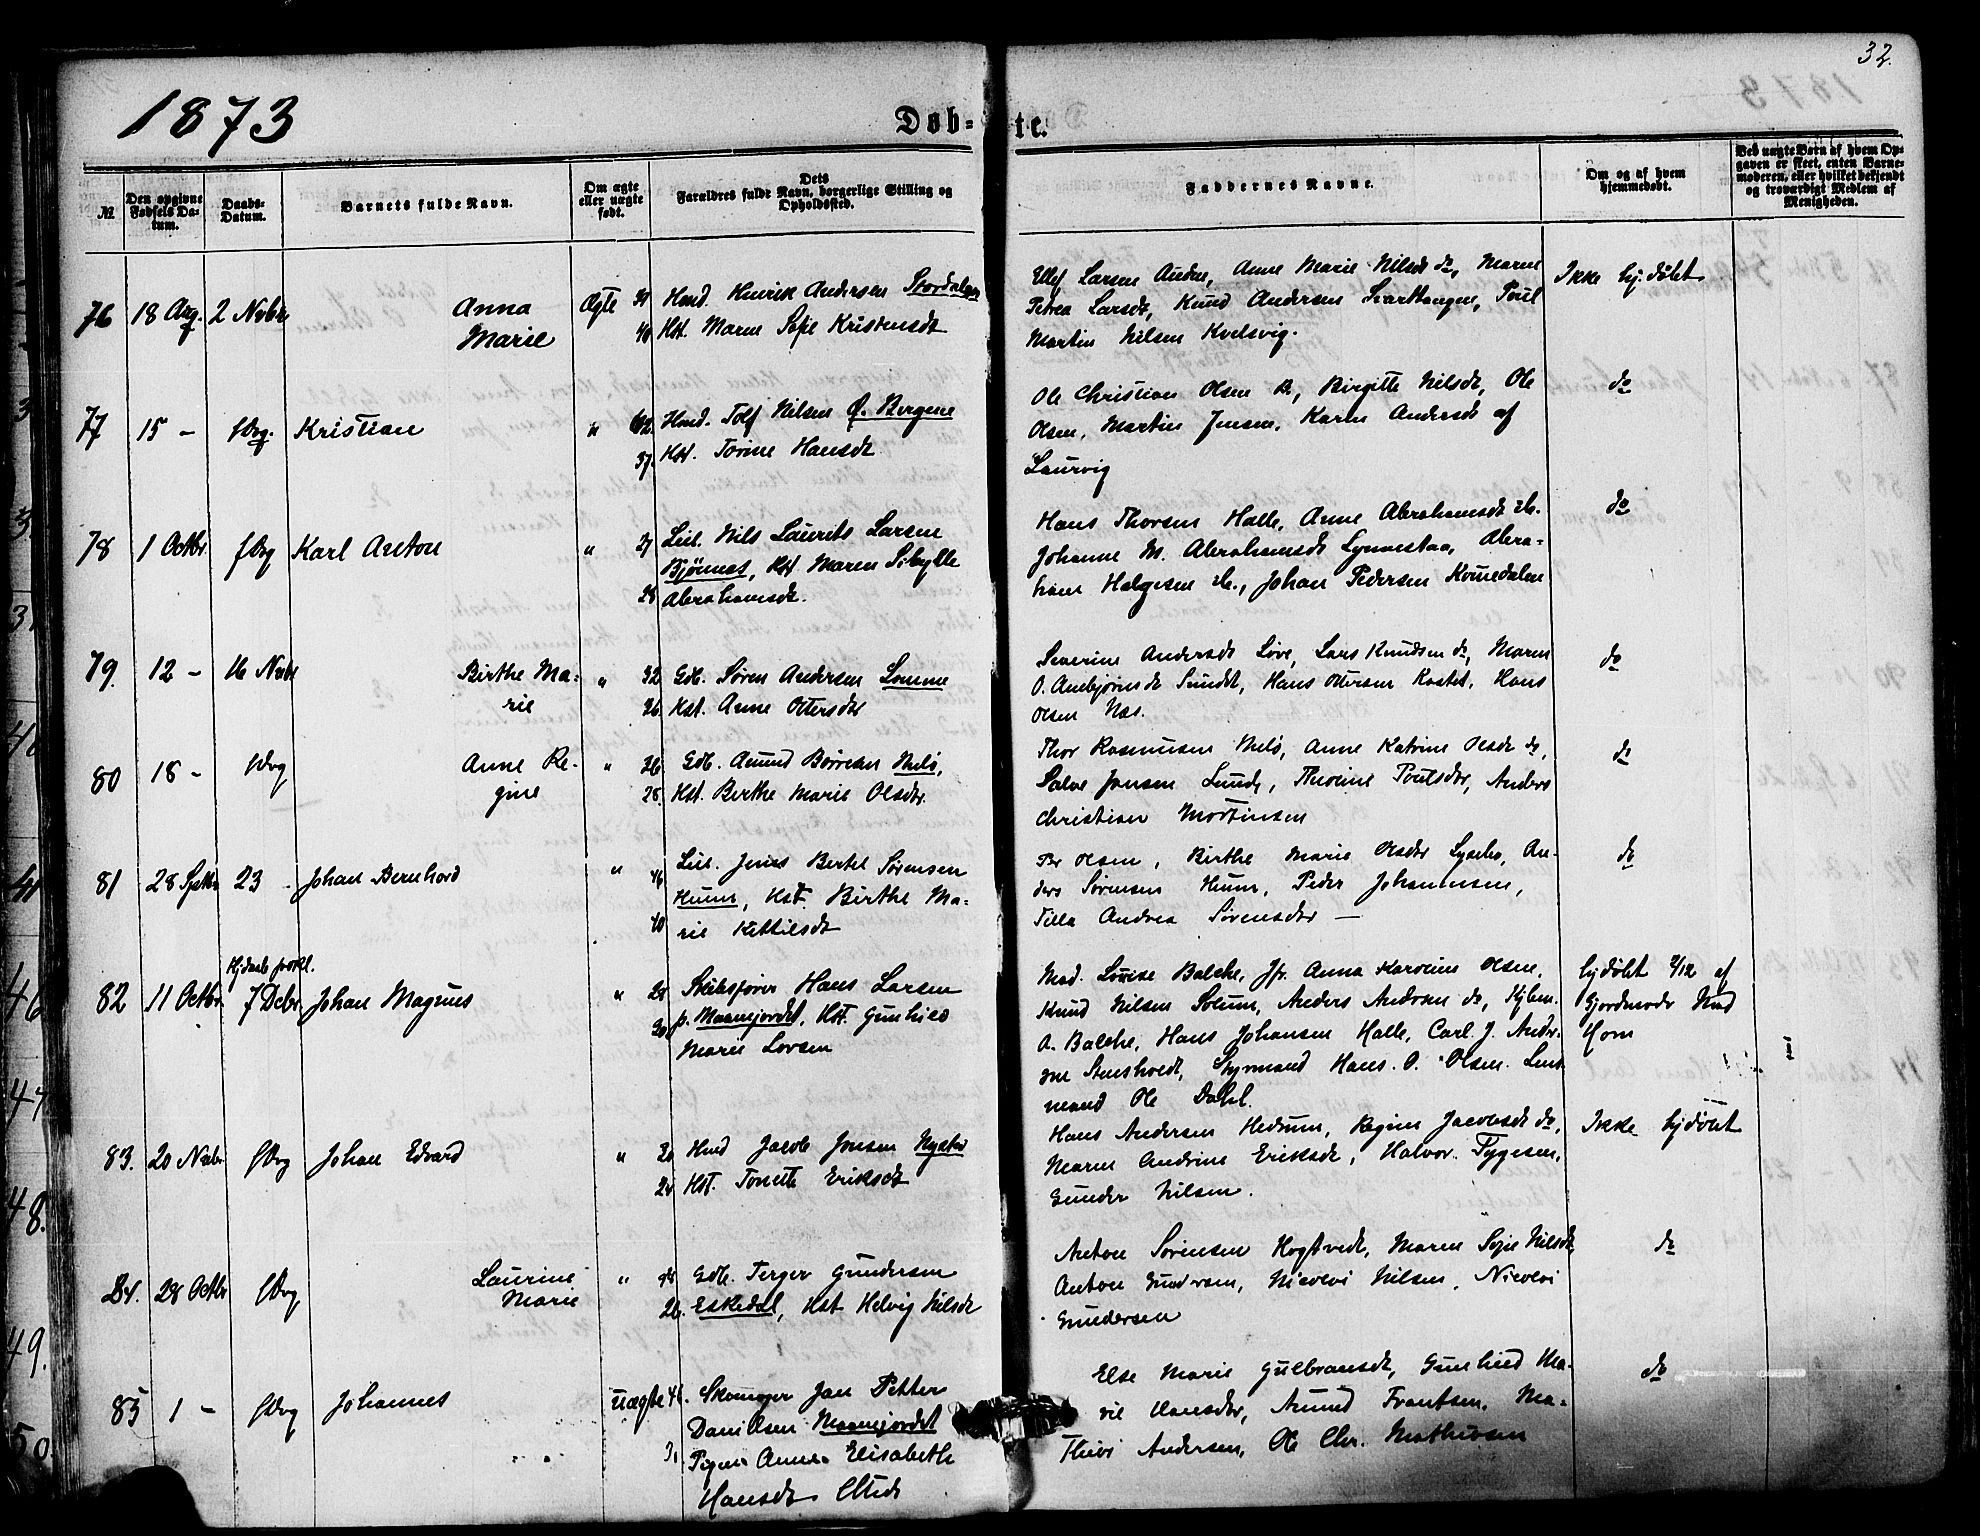 32.
1873
Døb-te.
№
Den opgivne Fødsels Datum.
Daabs-Datum.
Barnets fulde Navn.
Om ægte eller uægte født.
Dets Forældres fulde Navn, borgerlige Stilling og Opholdssted.
Faddernes Navne.
Om og af hvem hjemmedøbt.
Ved uægte Børn af hvem Opgaven er skeet, enten Barnemoderen, eller hvilket bekjendt og troværdigt Medlem af Menigheden.
76 18 Aug. 2 Novbr Anna Marie Ægte
Hmd. Henrik Andersen Stordalen
40 Kst. Maren Sofie Kristensdt
Ellef Larsen Auden, Anne Marie Nilsdt do, Maren
Petrea Larsdt, Knud Andersen Svartangen, Poul
Martin Nilsen Kvelsvig.
Ikke hj.døbt
77 15 – Kristian "
Hmd. Tolf Nilsen Ø. Bergene
37. Kst. Torine Hansdt
Ole Christian Olsen B., Birgitte Nilsdt, Ole
Olsen, Martin Jensen, Karen Andersdt af
Laurvig
do
78 1 Octbr. Karl Anton "
27 Leil. Nils Laurits Larsen
Bjønnes, Kst Maren Sibylle
28 Abrahamsdt.
Hans Thorsen Halle, Anne Abrahamsdt ib.
Johanne M. Abrahamsdt Synnestaa, Abra-
ham Helgesen ib., Johan Pedersen Komedalen
do
79. 12 – 16 Novbr Birthe Ma-
rie "
32 Gdb. Søren Andersen Lomme
36 Kst. Anne Ottersdtr
Severine Andersdt Løve, Lars Knudsen do, Maren
O. Anbjørnsdt Sundet, Hans Ottersen Kastet, Hans
Olsen Næs.
do
80 18 – Anne Re-
gine "
36. Gdb. Amund Børresen Melø,
28. Kst. Berthe Marie Olsdtr.
Thor Rasmusen Melø, Anne Katrine Olsdt do,
Salve Jonsen Lunde, Thorine Poulsdtr, Anders
Christian Mortinsen
do
81 28 Septbr 23 Johan Bernhard "
46 Leil. Jens Bertel Sørensen
Humm, Kst. Birthe Ma-
40 rie Kittilsdt
Per Olsen, Birthe Marie Olsdtr Lysebo, An-
ders Sørensen Hum, Peder Johannesen,
Tilla Andrea Sørensdtr —
do
Hjdaab prokl.
82 11 Octbr. 7 Debr. Johan Magnus "
28 Skibsfører Hans Larsen
20 p. Maanejordet, Kst. Gunhild
Marie Larsen
Mad. Lovise Balche, Jfr. Anna Karoline Olsen,
Knud Nilsen Solum, Anders Andersen do, Kjbm.
A. Balche, Hans Johansen Halle, Carl J. Ander-
sen Stensholdt, Styrmand Hans O. Olsen, Lens-
mand Ole Dahl.
hjdøbt 2/12 af
Gjordmodr Mad
Horn
83. 20 Novbr Johan Edvard "
30 Hmd Jacob Jonsen Nysted
24 Kst. Tonette Eriksdt
Hans Andersen Hedrum, Regine Jacobsdt do,
Maren Andrine Eriksdt, Halvor Tygesen,
Gunder Nilsen.
Ikke hjdøbt
84. 28 Octbr Laurine
Marie "
28 Gdb. Terger Gundersen
26. Eskedal, Kst Helvig Nilsdt
Anton Sørensen Hogtvedt, Maren Sofie Nilsdt,
Anton Gundersen, Nicolai Nilsen, Nicolai
Gundersen
do
85 1 – Johannes uægte
46. Skomager Jan Petter
Danilsen Maanejordet
31 Pigen Anne Elisabeth
Hansdt
Else Marie Gulbransdt, Gunhild Ma-
rie Hansdtr, Amund Frantsen, Ma-
thias Andersen, Ole Chr. Mathisen
do